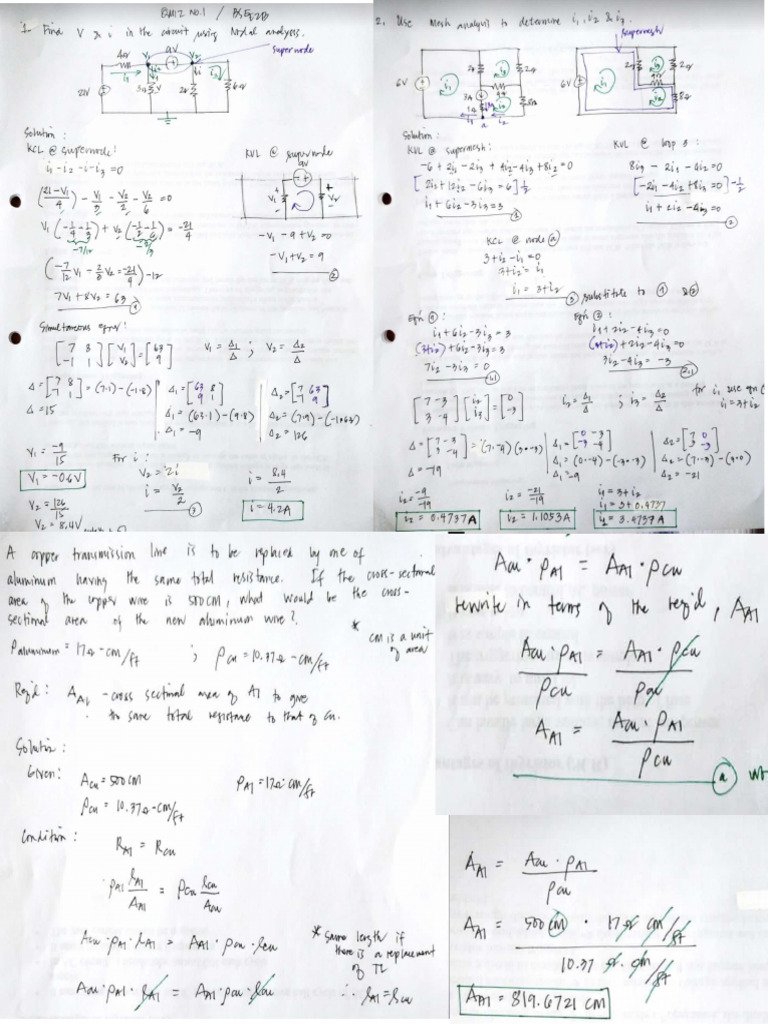 QUIZ NO.1 / BSEE2B
1. Find V & i in the circuit using Nodal analysis.
supernode
4Ω
V1
9V
V2
21V
3Ω
2Ω
6Ω
Solution:
KCL @ supernode:
i1 - i2 - i - i3 = 0
(21-V1/4) - V1/3 - V2/2 - V2/6 = 0
V1(-1/4 - 1/3) + V2(-1/2 - 1/6) = -21/4
-7/12
-2/3
(-7/12 V1 - 2/3 V2 = -21/4) -12
7V1 + 8V2 = 63
1
KVL @ supernode
9V
V1
V2
-V1 - 9 + V2 = 0
-V1 + V2 = 9
2
Simultaneous eqns:
[7 8 -1 1] [V1 V2] = [63 9]
V1 = Δ1/Δ ; V2 = Δ2/Δ
Δ = [7 8 -1 1] = (7·1) - (-1·8)
Δ = 15
Δ1 = [63 8 9 1]
Δ1 = (63·1) - (9·8)
Δ1 = -9
Δ2 = [7 63 -1 9]
Δ2 = (7·9) - (-1·63)
Δ2 = 126
V1 = -9/15
V1 = -0.6V
V2 = 126/15
V2 = 8.4V
For i:
V2 = 2i
i = V2/2
3
i = 8.4/2
i = 4.2A
2. Use Mesh analysis to determine i1, i2 & i3.
supermesh
6V
2Ω
2Ω
4Ω
3A
8Ω
1Ω
a
i1
i2
i3
6V
2Ω
2Ω
4Ω
8Ω
i1
i2
i3
Solution:
KVL @ supermesh:
-6 + 2i1 - 2i3 + 4i2 - 4i3 + 8i2 = 0
[2i1 + 12i2 - 6i3 = 6] 1/2
i1 + 6i2 - 3i3 = 3
1
KVL @ loop 3:
8i3 - 2i1 - 4i2 = 0
[-2i1 - 4i2 + 8i3 = 0] -1/2
i1 + 2i2 - 4i3 = 0
2
KCL @ node a
3 + i2 - i1 = 0
3 + i2 = i1
i1 = 3 + i2
3 substitute to 1 & 2
Eqn 1:
i1 + 6i2 - 3i3 = 3
(3+i2) + 6i2 - 3i3 = 3
7i2 - 3i3 = 0
1.1
Eqn 2:
i1 + 2i2 - 4i3 = 0
(3+i2) + 2i2 - 4i3 = 0
3i2 - 4i3 = -3
2.1
[7 -3 3 -4] [i2 i3] = [0 -3]
i2 = Δ1/Δ ; i3 = Δ2/Δ
for i1 use eqn
i1 = 3 + i2
Δ = [7 -3 3 -4] = (7·-4) - (3·-3)
Δ = -19
Δ1 = [0 -3 -3 -4]
Δ1 = (0·-4) - (-3·-3)
Δ1 = -9
Δ2 = [7 0 3 -3]
Δ2 = (7·-3) - (3·0)
Δ2 = -21
i2 = -9/-19
i2 = 0.4737A
i2 = -21/-19
i2 = 1.1053A
i1 = 3 + i2
i1 = 3 + 0.4737
i1 = 3.4737A
A copper transmission line is to be replaced by one of
aluminum having the same total resistance. If the cross-sectional
area of the copper wire is 500CM, what would be the cross-
sectional area of the new aluminum wire?
* CM is a unit of area
ρaluminum = 17Ω-CM/ft ; ρCu = 10.37Ω-CM/ft
Req'd: AAl - cross sectional area of Al to give
the same total resistance to that of Cu.
Solution:
Given: ACu = 500CM
ρAl = 17Ω-CM/ft
ρCu = 10.37Ω-CM/ft
Condition:
RAl = RCu
ρAl ℓAl/AAl = ρCu ℓCu/ACu
ACu·ρAl·ℓAl = AAl·ρCu·ℓCu
ACu·ρAl·ℓAl = AAl·ρCu·ℓCu
* same length if
there is a replacement
of TL
∴ ℓAl = ℓCu
ACu·ρAl = AAl·ρCu
rewrite in terms of the req'd, AAl
ACu·ρAl/ρCu = AAl·ρCu/ρCu
AAl = ACu·ρAl/ρCu
a
AAl = ACu·ρAl/ρCu
AAl = 500CM · 17Ω·CM/ft / 10.37Ω·CM/ft
AAl = 819.6721 CM